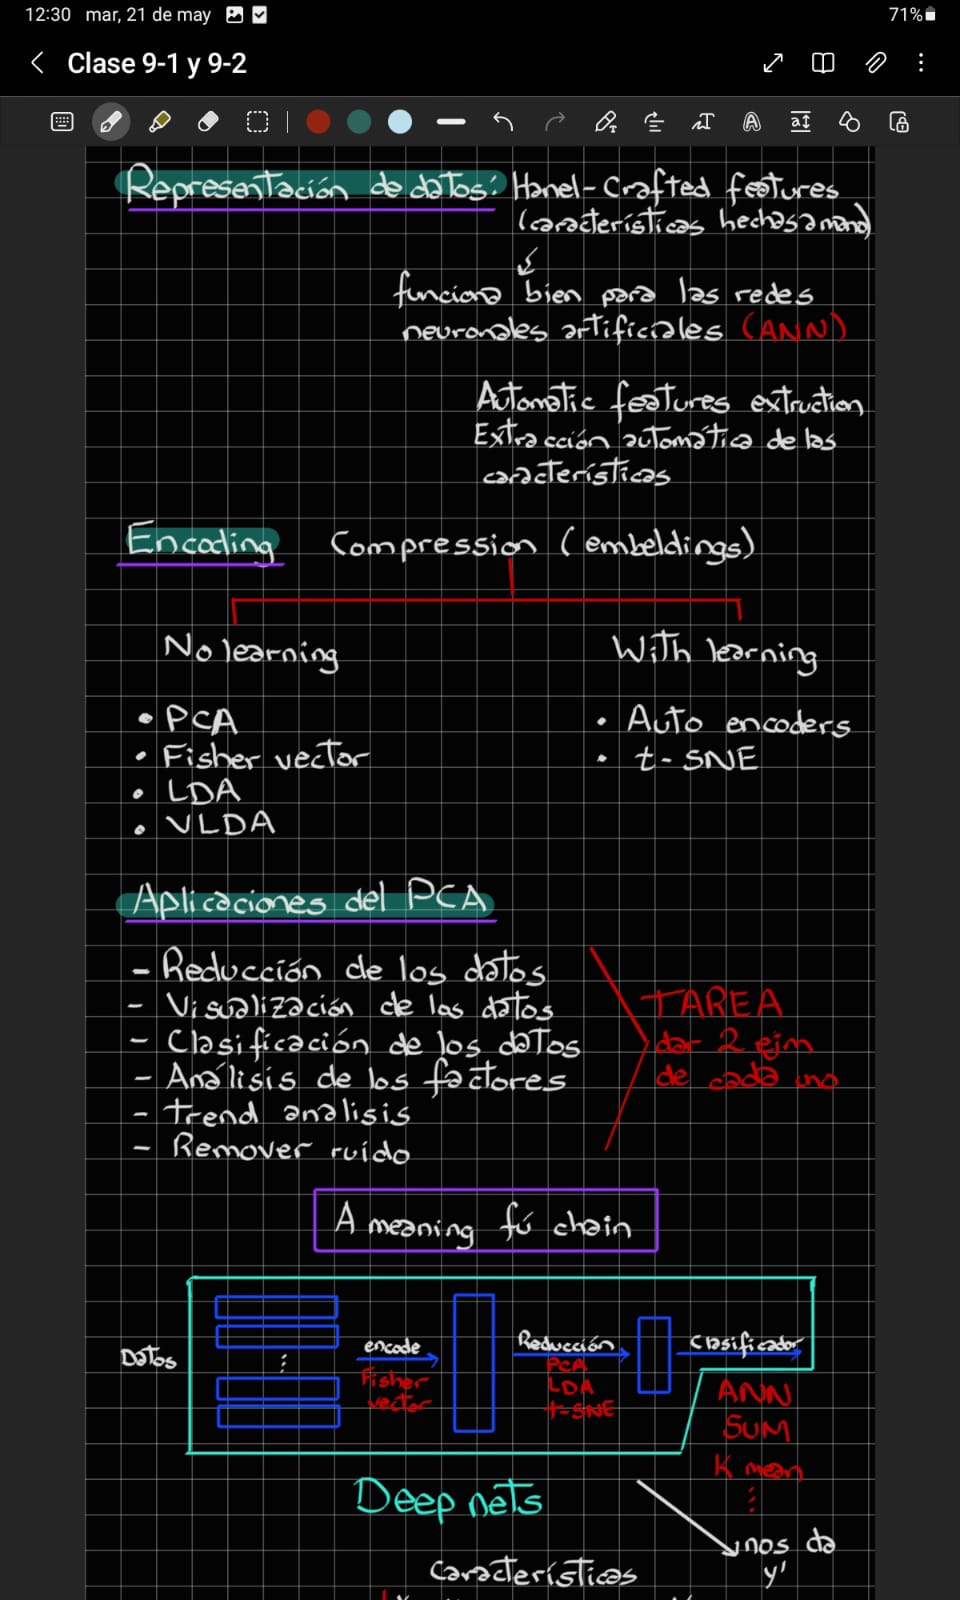 12:30 mar, 21 de may 71%
Clase 9-1 y 9-2
Representación de datos: Hanel-Crafted features
(características hechas a mano)
funciona bien para las redes
neuronales artificiales (ANN)
Automatic features extruction
Extracción automática de las
características
Encoding Compression (embeldings)
No learning With learning
• PCA • Auto encoders
• Fisher vector • t-SNE
• LDA
• VLDA
Aplicaciones del PCA
- Reducción de los datos
- Visualización de los datos
- Clasificación de los datos
- Análisis de los factores
- trend analisis
- Remover ruído
TAREA
dar 2 ejm
de cada uno
A meaning fú chain
Datos encode Reducción Clasificador
Fisher
vector
PCA
LDA
t-SNE
ANN
SUM
K mean
Deep nets
nos da
y'
Características